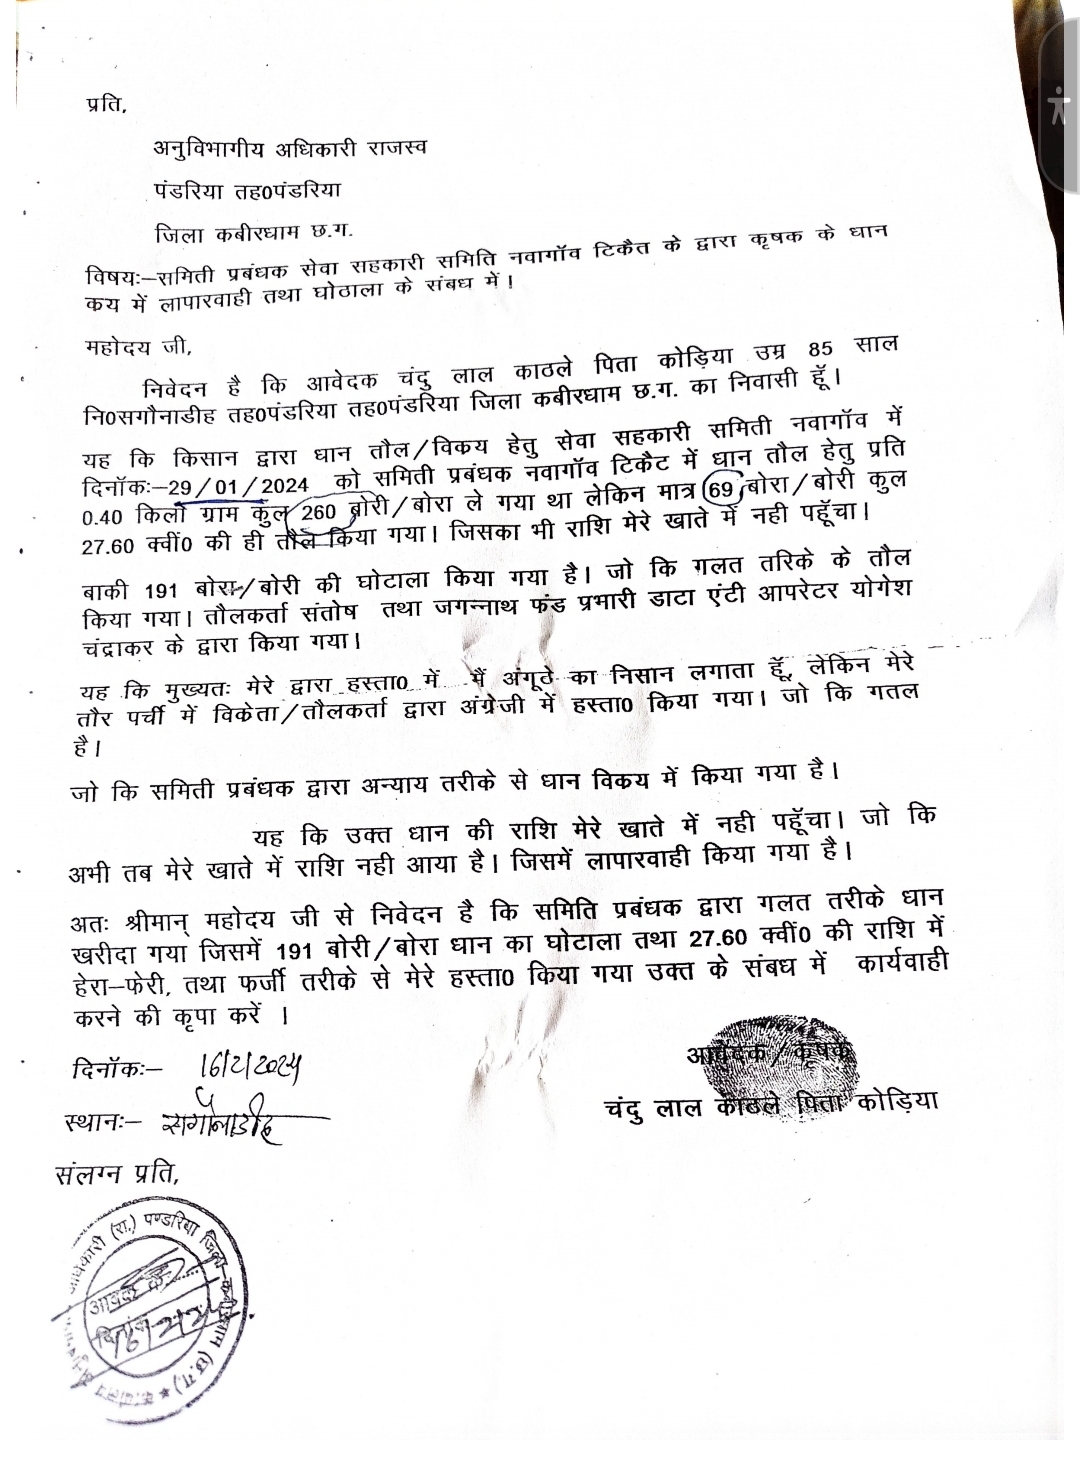 प्रति,
अनुविभागीय अधिकारी राजस्व
पंडरिया तह0पंडरिया
जिला कबीरधाम छ.ग.
विषयः–समिती प्रबंधक सेवा सहकारी समिति नवागॉव टिकैत के द्वारा कृषक के धान
कय में लापारवाही तथा घोठाला के संबध में।
महोदय जी,
निवेदन है कि आवेदक चंदु लाल काठले पिता कोड़िया उम्र 85 साल
नि0सगौनाडीह तह0पंडरिया तह0पंडरिया जिला कबीरधाम छ.ग. का निवासी हूॅ।
यह कि किसान द्वारा धान तौल/विकय हेतु सेवा सहकारी समिती नवागॉव में
दिनॉकः–29/01/2024 को समिती प्रबंधक नवागॉव टिकैट में धान तौल हेतु प्रति
0.40 किलो ग्राम कुल 260 बोरी/बोरा ले गया था लेकिन मात्र 69 बोरा/बोरी कुल
27.60 क्वीं0 की ही तौल किया गया। जिसका भी राशि मेरे खाते में नही पहूॅचा।
बाकी 191 बोरा/बोरी की घोटाला किया गया है। जो कि गलत तरिके के तौल
किया गया। तौलकर्ता संतोष तथा जगन्नाथ फंड प्रभारी डाटा एंटी आपरेटर योगेश
चंद्राकर के द्वारा किया गया।
यह कि मुख्यतः मेरे द्वारा हस्ता0 में मैं अंगूठे का निसान लगाता हूॅ, लेकिन मेरे
तौर पर्ची में विकेता/तौलकर्ता द्वारा अंग्रेजी में हस्ता0 किया गया। जो कि गतल
है।
जो कि समिती प्रबंधक द्वारा अन्याय तरीके से धान विकय में किया गया है।
यह कि उक्त धान की राशि मेरे खाते में नही पहूॅचा। जो कि
अभी तब मेरे खाते में राशि नही आया है। जिसमें लापारवाही किया गया है।
अतः श्रीमान् महोदय जी से निवेदन है कि समिति प्रबंधक द्वारा गलत तरीके धान
खरीदा गया जिसमें 191 बोरी/बोरा धान का घोटाला तथा 27.60 क्वीं0 की राशि में
हेरा–फेरी, तथा फर्जी तरीके से मेरे हस्ता0 किया गया उक्त के संबध में कार्यवाही
करने की कृपा करें ।
दिनॉकः– 16/2/2024
आवेदक/कृषक
स्थानः– सगौनाडीह
चंदु लाल काठले पिता कोड़िया
संलग्न प्रति,
अधिकारी (रा.) पण्डरिया जिला-कबीरधाम (छ.ग.)